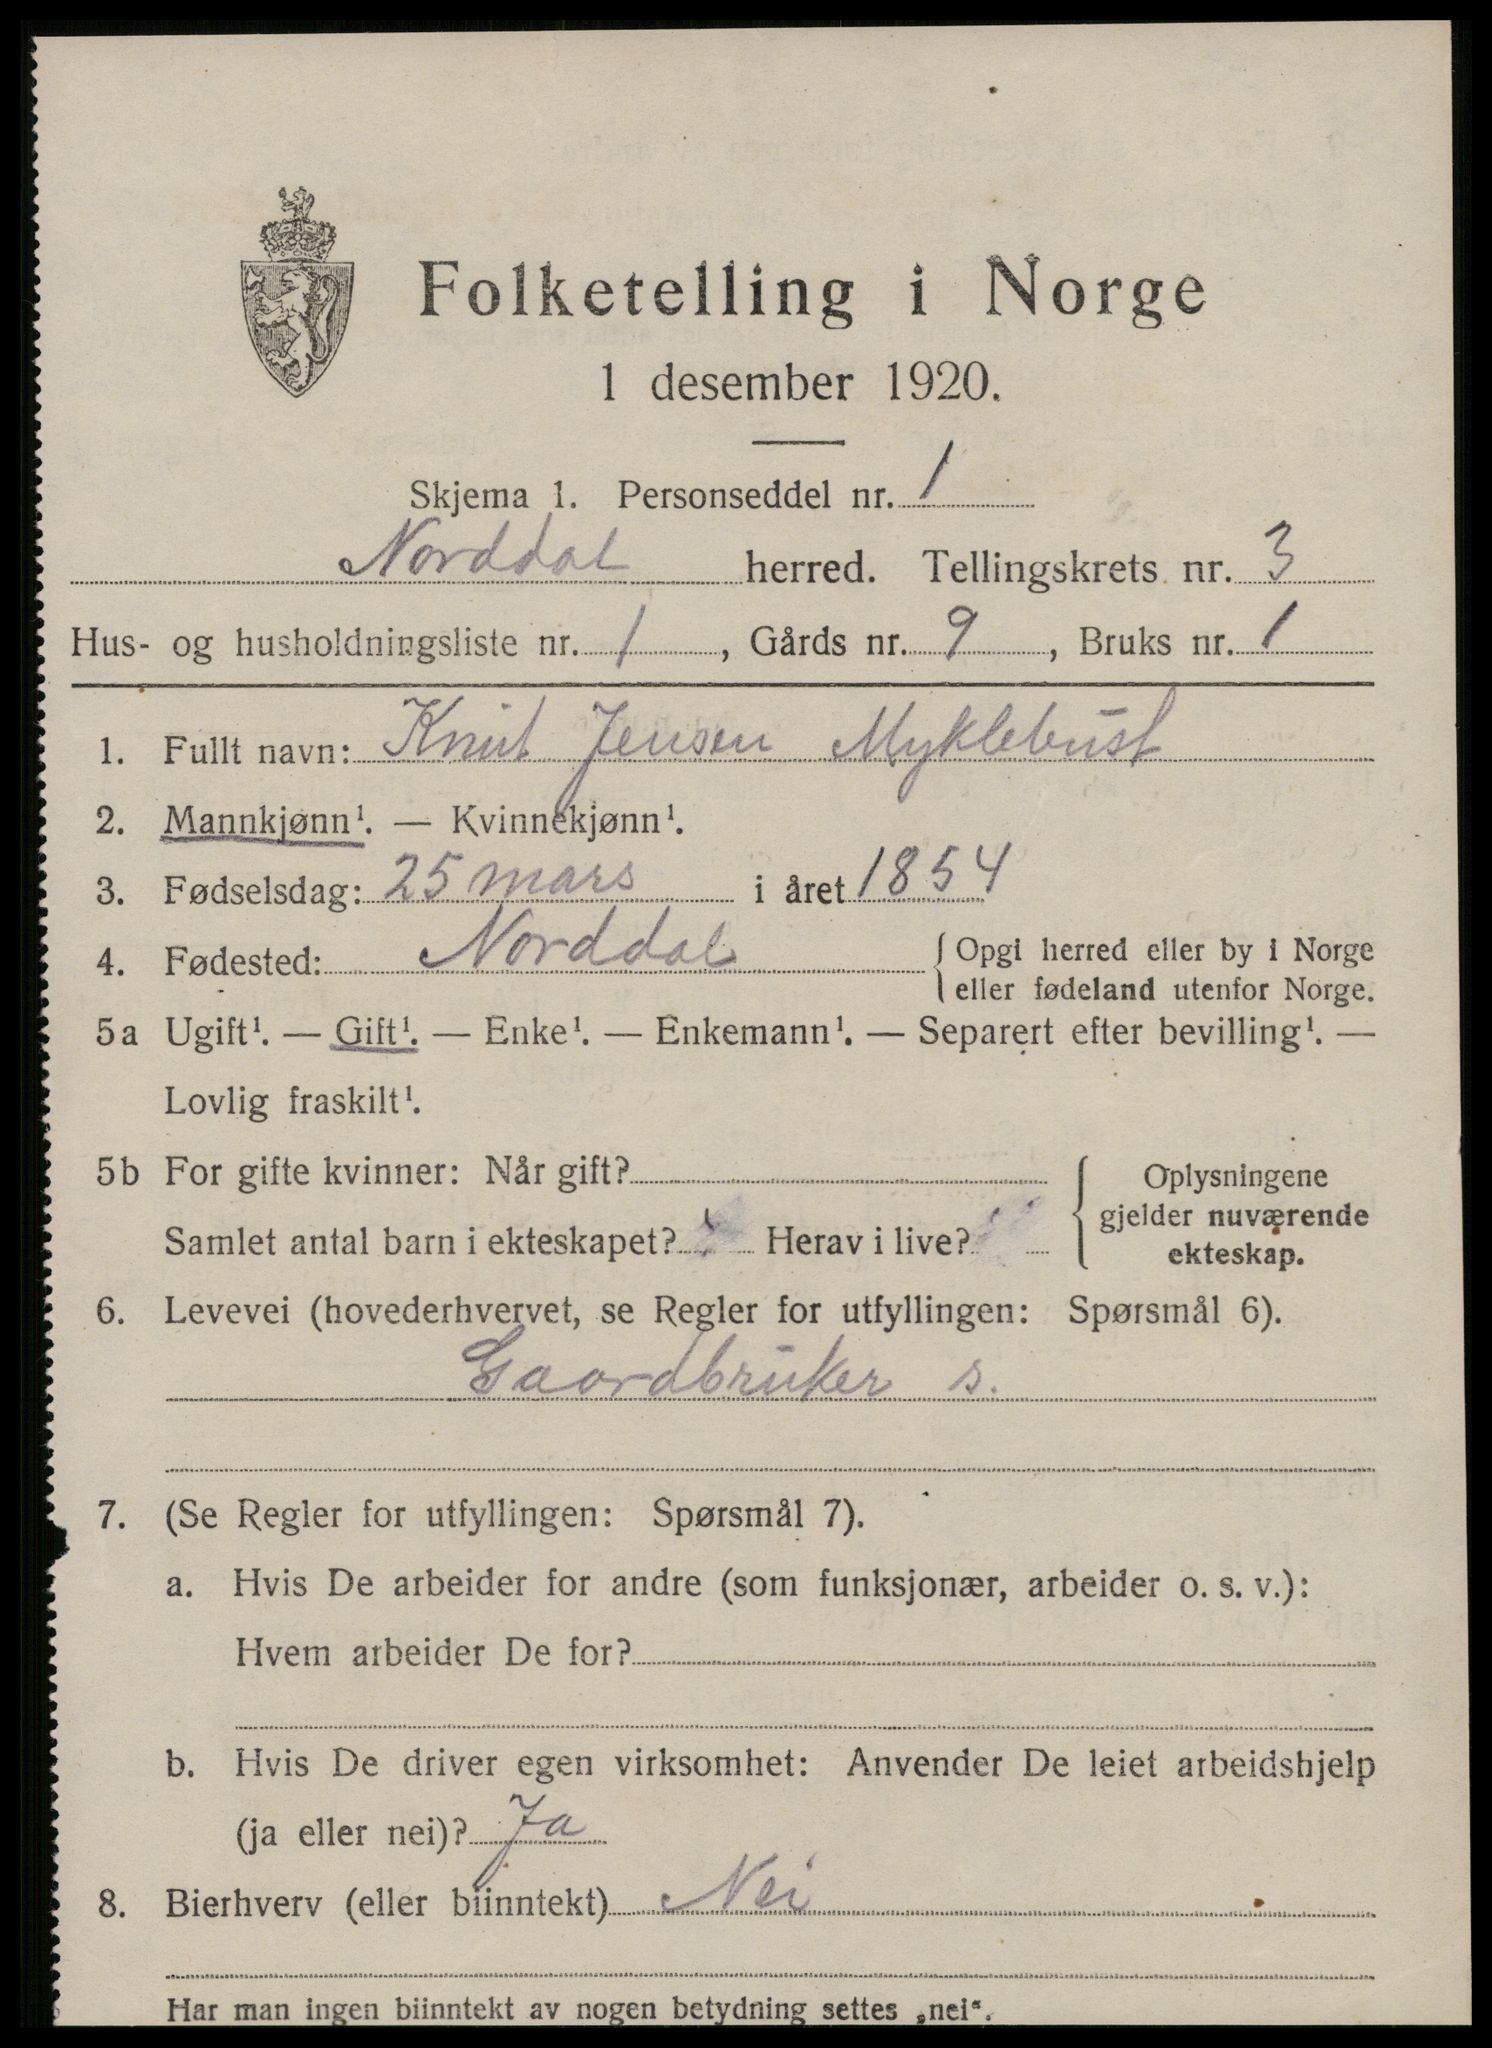 Folketelling i Norge
1 desember 1920.
Skjema 1. Personseddel nr. 1
Norddal herred. Tellingskrets nr. 3
Hus- og husholdningsliste nr. 1, Gårds nr. 9, Bruks nr. 1
1. Fullt navn: Knut Jensen Myklebust
2. Mannkjønn¹. — Kvinnekjønn¹.
3. Fødselsdag: 25 mars i året 1854
4. Fødested: Norddal { Opgi herred eller by i Norge
eller fødeland utenfor Norge.
5a Ugift¹. — Gift¹. — Enke¹. — Enkemann¹. — Separert efter bevilling¹. —
Lovlig fraskilt¹.
5b For gifte kvinner: Når gift?
Samlet antal barn i ekteskapet? Herav i live?
Oplysningene
gjelder nuværende
ekteskap.
6. Levevei (hovederhvervet, se Regler for utfyllingen: Spørsmål 6).
Gaardbruker s.
7. (Se Regler for utfyllingen: Spørsmål 7).
a. Hvis De arbeider for andre (som funksjonær, arbeider o. s. v.):
Hvem arbeider De for?
b. Hvis De driver egen virksomhet: Anvender De leiet arbeidshjelp
(ja eller nei)? Ja
8. Bierhverv (eller biinntekt) Nei
Har man ingen biinntekt av nogen betydning settes „nei“.